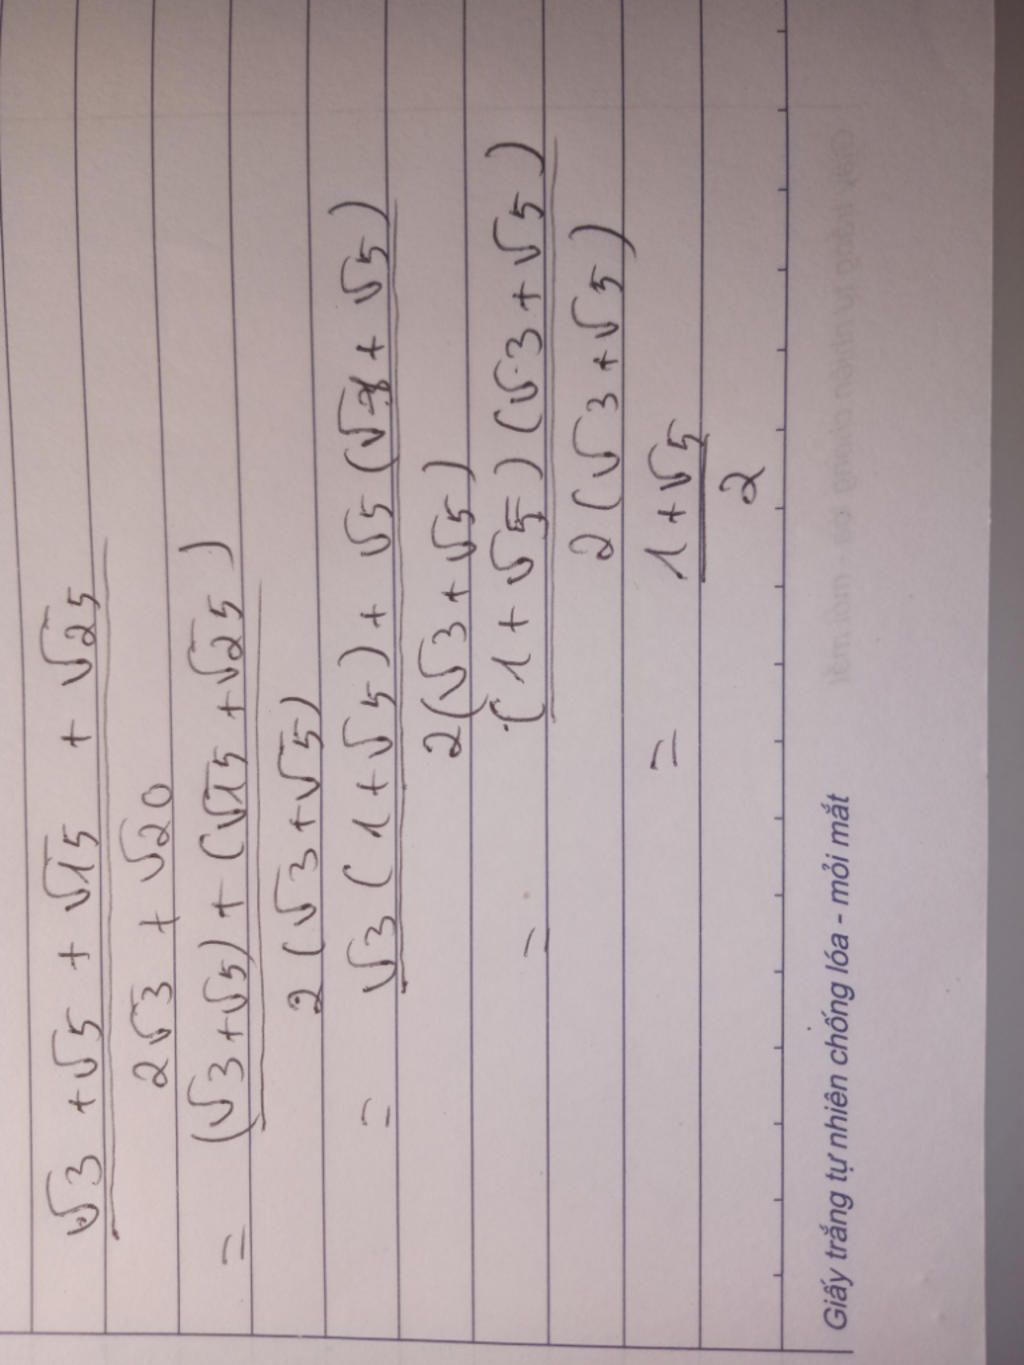 √3 + √5 + √15 + √25
2√3 + √20
= (√3+√5) + (√15 + √25)
2(√3+√5)
= √3 (1+√5) + √5 ( + √5)
2(√3+√5)
= (1+√5)(√3+√5)
2(√3+√5)
= 1+√5
2
Giấy trắng tự nhiên chống lóa - mỏi mắt